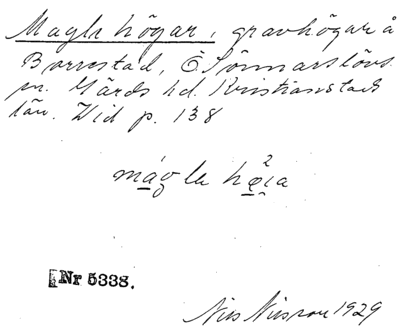 Magle högar, gravhögar å
Borrestad, Ö Sönnarslövs
sn. Gärds hd. Kristianstads
län. Wid p. 138
mágla hø̨ia
[Nr 5338.
Nils Nilsson 1929